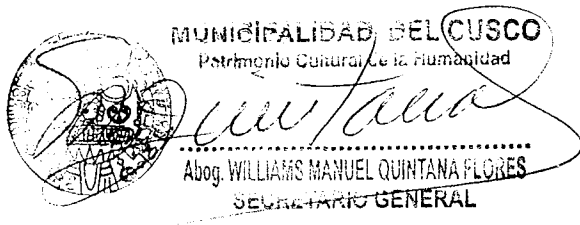 MUNICIPALIDAD DEL CUSCO
Patrimonio Cultural de la Humanidad
Quintana
Abog. WILLIAMS MANUEL QUINTANA FLORES
SECRETARIO GENERAL